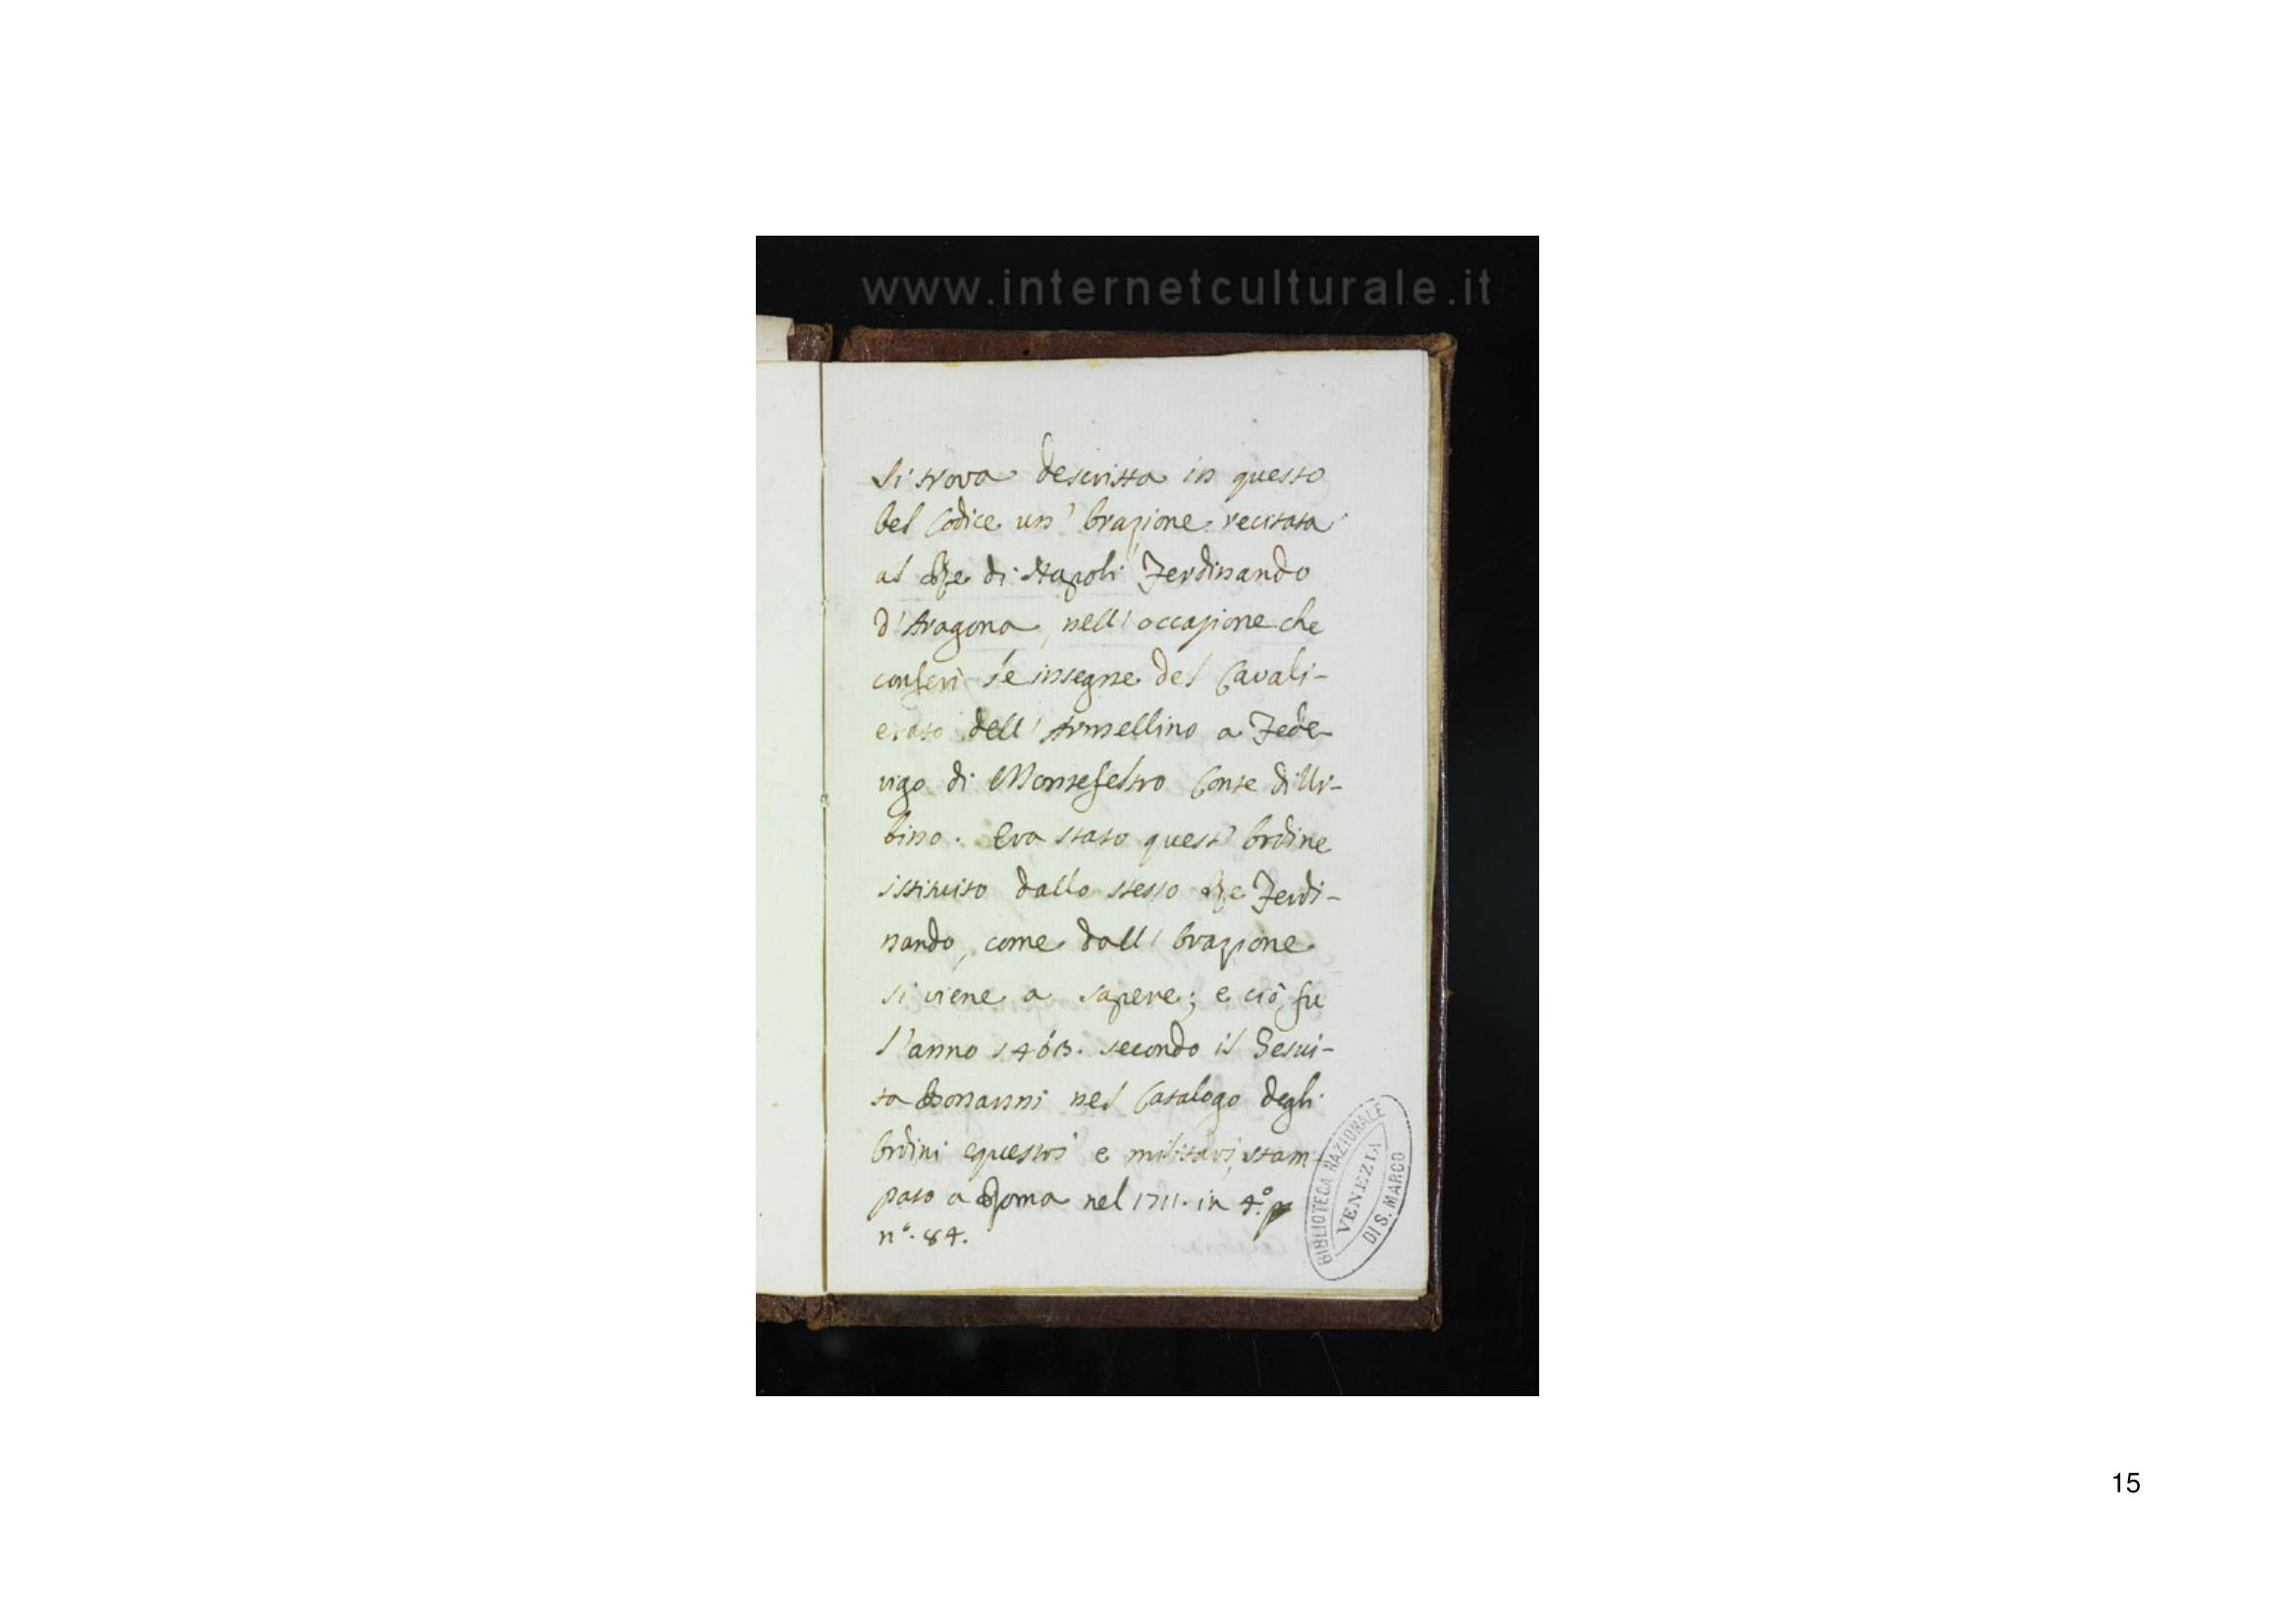 www.internetculturale.it
Si trova descritta in questo
bel Codice un' Orazione recitata
al Re di Napoli Ferdinando
d'Aragona, nell'occazione che
conferì le insegne del Cavali-
erato dell'Armellino a Fede-
rigo di Montefeltro Conte di Ur-
bino. Era stato quest' Ordine
istituito dallo stesso Re Ferdi-
nando, come dall' Orazione
si viene a sapere; e ciò fu
l'anno 1463. secondo il Gesui-
ta Bonanni nel Catalogo degli
Ordini equestri e militari, stam-
pato a Roma nel 1711. in 4.º
nº. 84.
BIBLIOTECA NAZIONALE
VENEZIA
DI S. MARCO
15